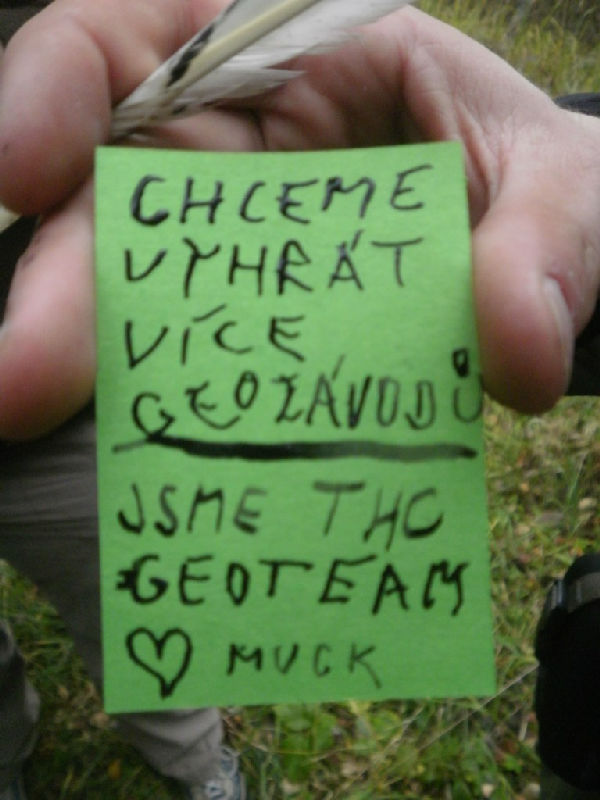 CHCEME
VYHRÁT
VÍCE
GEOZÁVODŮ
JSME THC
GEOTEAM
♡ MUCK